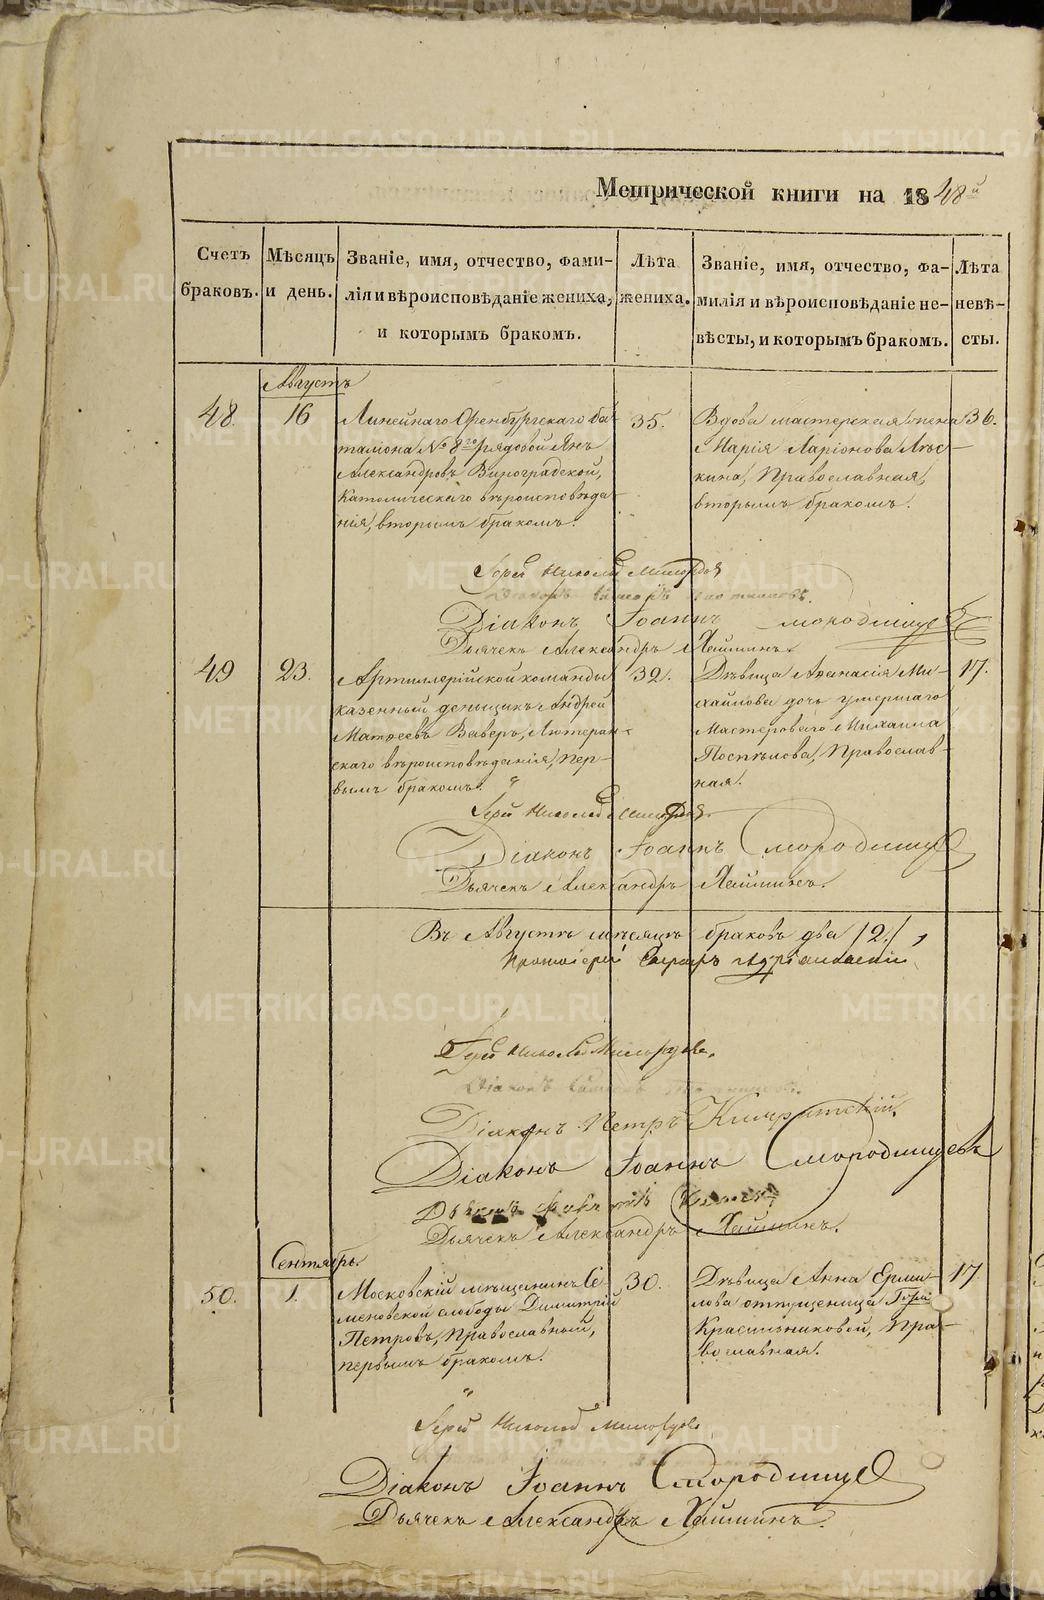 Метрической книги на 1848й
Счетъ браковъ.
Мѣсяцъ и день.
Званіе, имя, отчество, фами-
лія и вѣроисповѣданіе жениха,
и которымъ бракомъ.
Лѣта жениха.
Званіе, имя, отчество, фа-
милія и вѣроисповѣданіе не-
вѣсты, и которымъ бракомъ.
Лѣта невѣ-
сты.
Августъ
48.
16
Линейнаго Оренбургскаго ба-
таліона № 8го рядовой Янъ
Александровъ Виноградской,
Католическаго вѣроисповѣда-
нія, вторымъ бракомъ.
35.
Вдова мастерская жена
Марія Ларіонова
кина, Православная,
вторымъ бракомъ.
36.
Іерей Николай
Діаконъ Іоаннъ
Дьячекъ Александръ Хаминъ.
49
23.
Артиллерійской команды
казенный денщикъ Андрей
Матвеевъ Веберъ, Лютеран-
скаго вѣроисповѣданія, пер-
вымъ бракомъ.
32.
Дѣвица Афанасія Ми-
хайлова дочь умершаго
Мастероваго Михаила
Поспѣлова, Православ-
ная.
17.
Іерей Николай
Діаконъ Іоаннъ Смородинце
Дьячекъ Александръ Хаминъ.
Въ Августѣ мѣсяцѣ браковъ два /2./,
Протоіерей
Іерей Николай
Діаконъ
Діаконъ Петръ
Діаконъ Іоаннъ Смородинцевъ
Дьячекъ Александръ Хаминъ.
Сентябрь.
50.
1.
Московскій мѣщанинъ Се-
меновской слободы Димитрій
Петровъ, Православный,
первымъ бракомъ.
30.
Дѣвица Анна Ерми-
лова отпущенница Г-жи
Красильниковой, Пра-
вославная.
17
Іерей Николай
Діаконъ Іоаннъ Смородинце
Дьячекъ Александръ Хаминъ.
METRIKI.GASO-URAL.RU